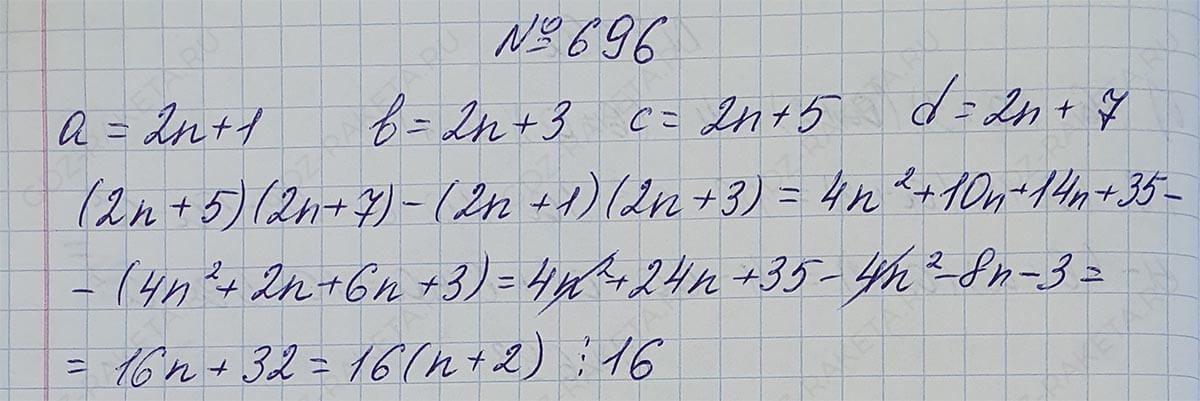 № 696
a = 2n+1 b = 2n+3 c = 2n+5 d = 2n+7
(2n+5)(2n+7)-(2n+1)(2n+3) = 4n²+10n+14n+35-
-(4n²+2n+6n+3)=4n²+24n+35-4n²-8n-3=
= 16n+32=16(n+2) ⋮ 16